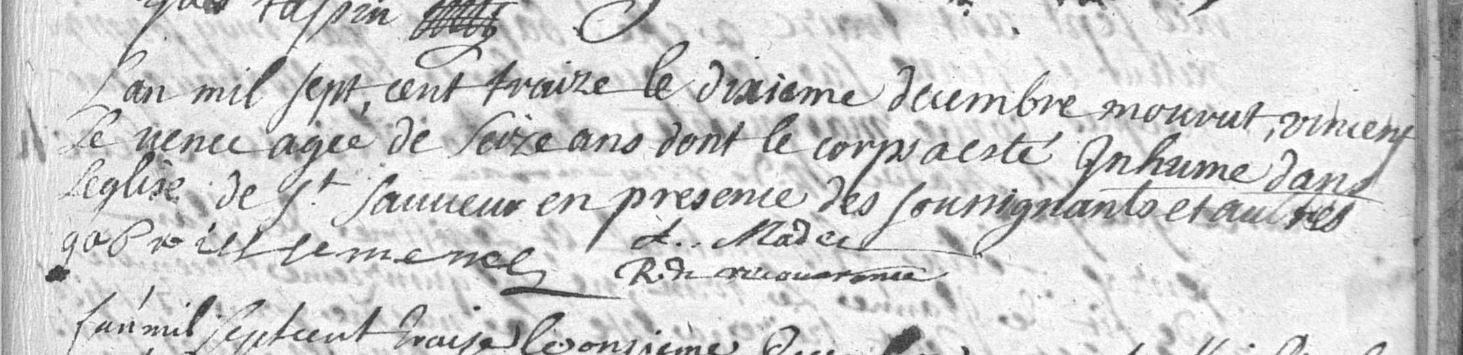 L'an mil sept cent traize le dixieme decembre mourut vincent
Le venec agee de seize ans dont le corps a esté Inhume dans
Leglise de St Sauveur en presence des soussignants et autres
A. Madec
R. de
l'an mil sept cent traise le onsieme